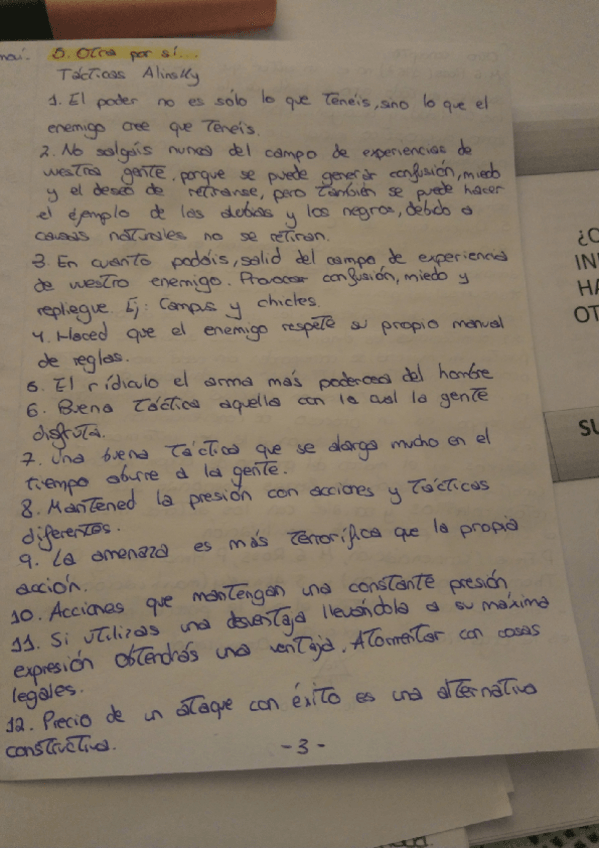 D. Otra por sí...
Tácticas Alinsky
1. El poder no es sólo lo que tenéis, sino lo que el
enemigo cree que tenéis.
2. No salgáis nunca del campo de experiencias de
vuestra gente, porque se puede generar confusión, miedo
y el deseo de retirarse, pero también se puede hacer
el ejemplo de las y los negros, debido a
causas naturales no se retiran.
3. En cuanto podáis, salid del campo de experiencia
de vuestro enemigo. Provocar confusión, miedo y
repliegue. Ej: Campus y chicles.
4. Haced que el enemigo respete su propio manual
de reglas.
5. El rídiculo el arma más poderosa del hombre
6. Buena táctica aquella con la cual la gente
disfruta.
7. Una buena táctica que se alarga mucho en el
tiempo aburre a la gente.
8. Mantened la presión con acciones y tácticas
diferentes.
9. La amenaza es más terrorífica que la propia
acción.
10. Acciones que mantengan una constante presión
11. Si utilizas una desventaja llevándola a su máxima
expresión obtendrás una ventaja. Atormentar con cosas
legales.
12. Precio de un ataque con éxito es una alternativa
constructiva.
-3-
¿C
IN
HA
OT
SU